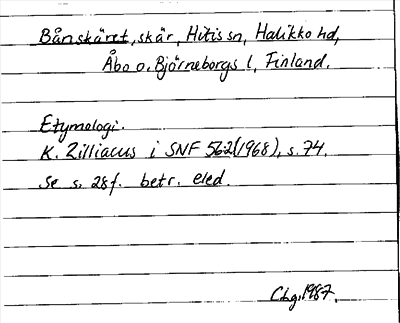 Bånskäret, skär, Hitis sn, Halikko hd,
Åbo o. Björneborgs l, Finland.
Etymologi.
K. Zilliacus i SNF 562(1968), s. 74.
Se s. 28f. betr. eled.
CLg. 1987.